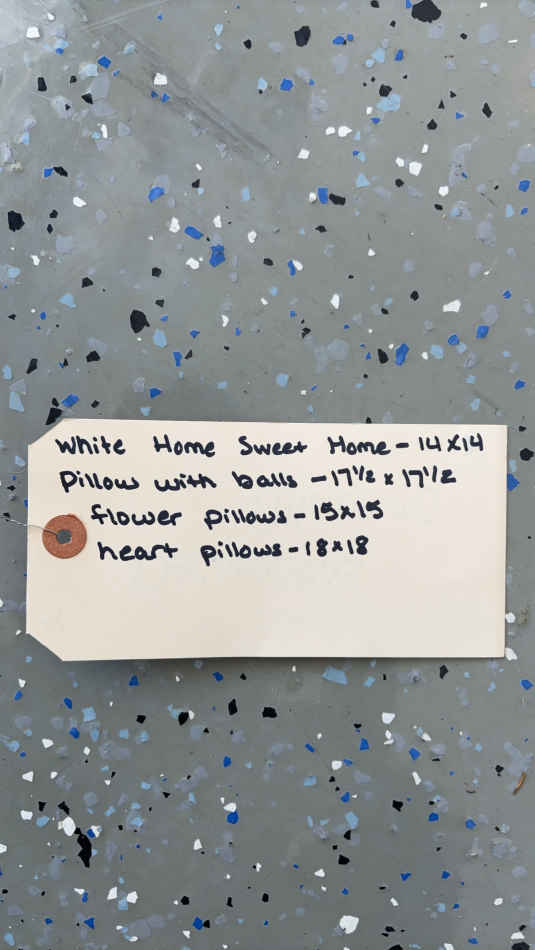 White Home Sweet Home - 14x14
Pillow with balls - 17 1/2 x 17 1/2
flower pillows - 15x15
heart pillows - 18x18